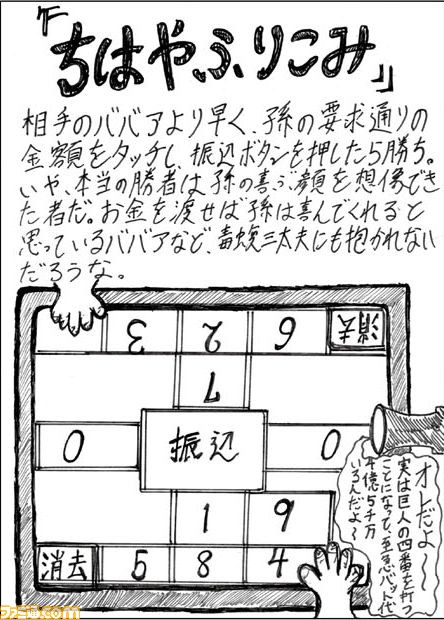 『ちはやふりこみ』
相手のババアより早く、孫の要求通りの
金額をタッチし、振込ボタンを押したら勝ち。
いや、本当の勝者は孫の喜ぶ顔を想像でき
た者だ。お金を渡せば孫は喜んでくれると
思っているババアなど、毒蝮三太夫にも抱かれない
だろうな。
3 2 6 消去
7
0 振込 0
1 9
消去 5 8 4
オレだよ〜
実は巨人の四番を打つ
ことになって、至急バット代
4億5千万
いるんだよ〜
ファミ通.com